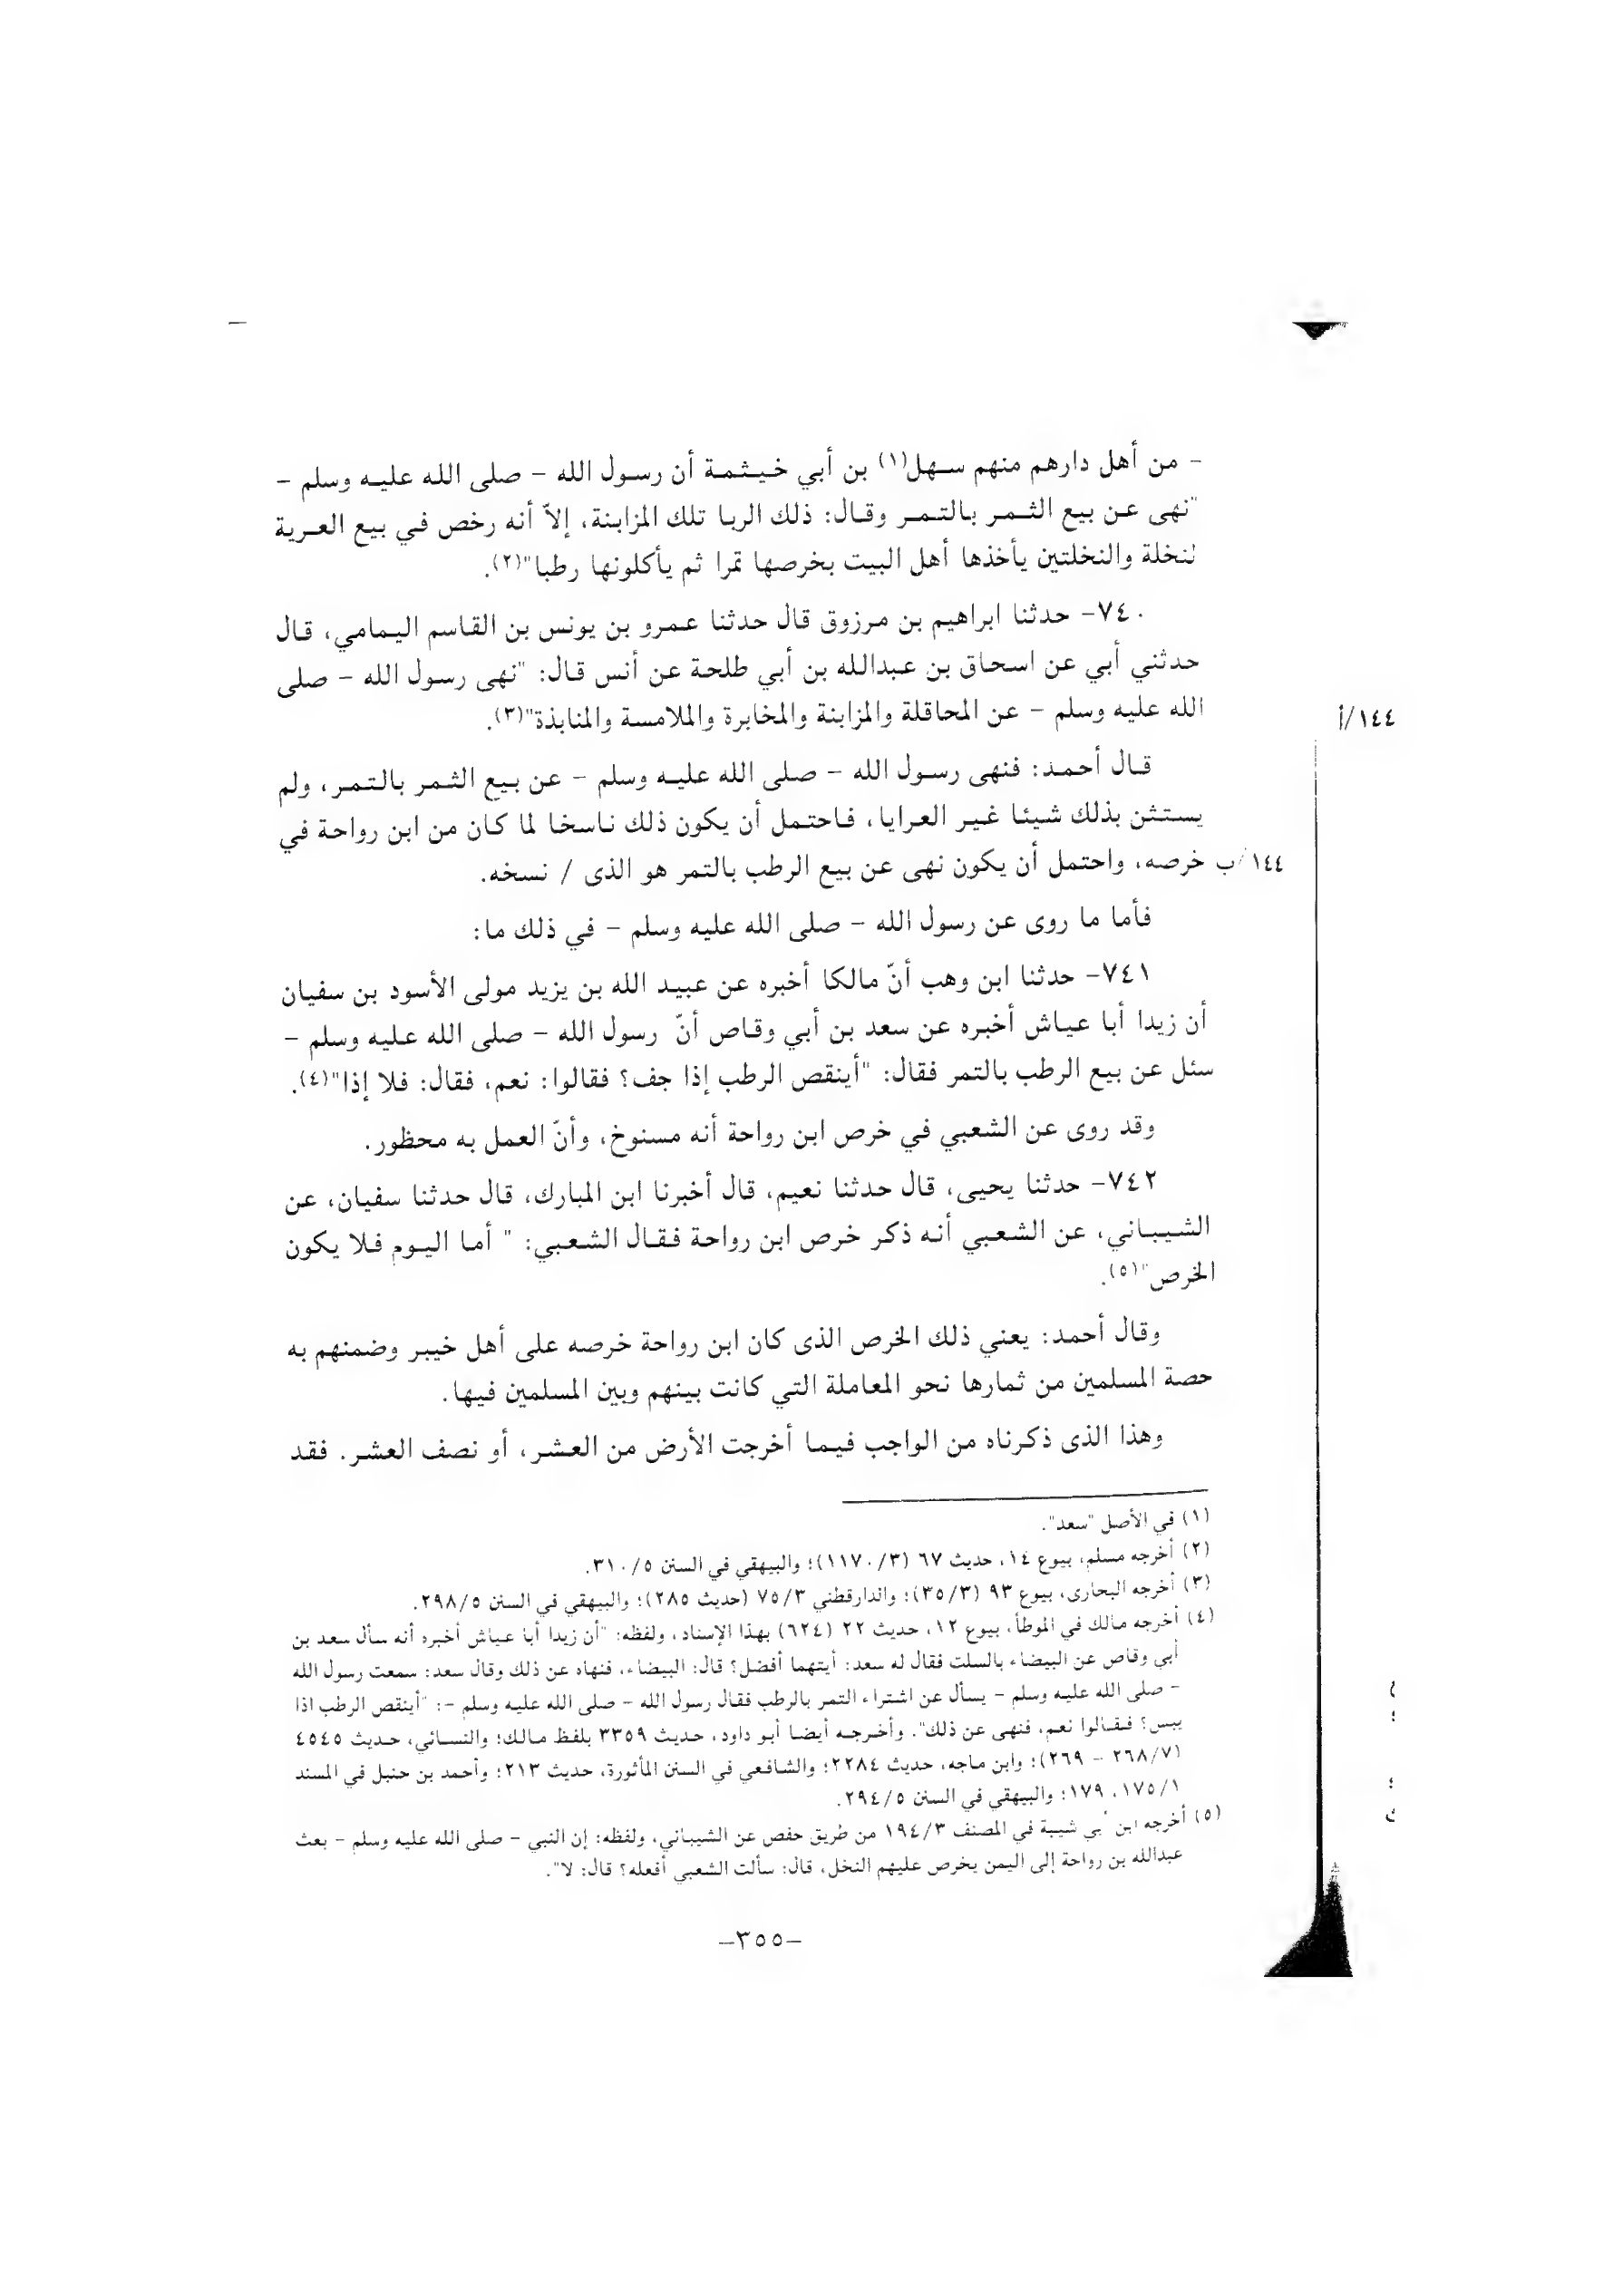 - من أهل دارهم منهم سهل(١) بن أبي خيثمة أن رسول الله - صلى الله عليه وسلم -
"نهى عن بيع الثمر بالتمر وقال: ذلك الربا تلك المزابنة، إلاّ أنه رخص في بيع العرية
لنخلة والنخلتين يأخذها أهل البيت بخرصها تمرا ثم يأكلونها رطبا"(٢).
٧٤٠- حدثنا ابراهيم بن مرزوق قال حدثنا عمرو بن يونس بن القاسم اليمامي، قال
حدثني أبي عن اسحاق بن عبدالله بن أبي طلحة عن أنس قال: "نهى رسول الله - صلى
الله عليه وسلم - عن المحاقلة والمزابنة والمخابرة والملامسة والمنابذة"(٣).
١٤٤/أ
قال أحمد: فنهى رسول الله - صلى الله عليه وسلم - عن بيع الثمر بالتمر، ولم
يستثن بذلك شيئا غير العرايا، فاحتمل أن يكون ذلك ناسخا لما كان من ابن رواحة في
١٤٤/ب خرصه، واحتمل أن يكون نهى عن بيع الرطب بالتمر هو الذى / نسخه.
فأما ما روى عن رسول الله - صلى الله عليه وسلم - في ذلك ما:
٧٤١- حدثنا ابن وهب أنّ مالكا أخبره عن عبيد الله بن يزيد مولى الأسود بن سفيان
أن زيدا أبا عياش أخبره عن سعد بن أبي وقاص أنّ رسول الله - صلى الله عليه وسلم -
سئل عن بيع الرطب بالتمر فقال: "أينقص الرطب إذا جف؟ فقالوا: نعم، فقال: فلا إذا"(٤).
وقد روى عن الشعبي في خرص ابن رواحة أنه مسنوخ، وأنّ العمل به محظور.
٧٤٢- حدثنا يحيى، قال حدثنا نعيم، قال أخبرنا ابن المبارك، قال حدثنا سفيان، عن
الشيباني، عن الشعبي أنه ذكر خرص ابن رواحة فقال الشعبي: " أما اليوم فلا يكون
الخرص"(٥).
وقال أحمد: يعني ذلك الخرص الذى كان ابن رواحة خرصه على أهل خيبر وضمنهم به
حصة المسلمين من ثمارها نحو المعاملة التي كانت بينهم وبين المسلمين فيها.
وهذا الذى ذكرناه من الواجب فيما أخرجت الأرض من العشر، أو نصف العشر. فقد
(١) في الأصل "سعد".
(٢) أخرجه مسلم، بيوع ١٤، حديث ٦٧ (١١٧٠/٣)؛ والبيهقي في السنن ٣١٠/٥.
(٣) أخرجه البخارى، بيوع ٩٣ (٣٥/٣)؛ والدارقطني ٧٥/٣ (حديث ٢٨٥)؛ والبيهقي في السنن ٢٩٨/٥.
(٤) أخرجه مالك في الموطأ، بيوع ١٢، حديث ٢٢ (٦٢٤) بهذا الإسناد، ولفظه: "أن زيدا أبا عياش أخبره أنه سأل سعد بن
أبي وقاص عن البيضاء بالسلت فقال له سعد: أيتهما أفضل؟ قال: البيضاء، فنهاه عن ذلك وقال سعد: سمعت رسول الله
- صلى الله عليه وسلم - يسأل عن اشتراء التمر بالرطب فقال رسول الله - صلى الله عليه وسلم -: "أينقص الرطب اذا
يبس؟ فقالوا نعم، فنهى عن ذلك". وأخرجه أيضا أبو داود، حديث ٣٣٥٩ بلفظ مالك؛ والنسائي، حديث ٤٥٤٥
(٢٦٨/٧ - ٢٦٩)؛ وابن ماجه، حديث ٢٢٨٤؛ والشافعي في السنن المأثورة، حديث ٢١٣؛ وأحمد بن حنبل في المسند
١٧٥/١، ١٧٩؛ والبيهقي في السنن ٢٩٤/٥.
(٥) أخرجه ابن أبي شيبة في المصنف ١٩٤/٣ من طريق حفص عن الشيباني، ولفظه: إن النبي - صلى الله عليه وسلم - بعث
عبدالله بن رواحة إلى اليمن يخرص عليهم النخل، قال: سألت الشعبي أفعله؟ قال: لا".
-٣٥٥-